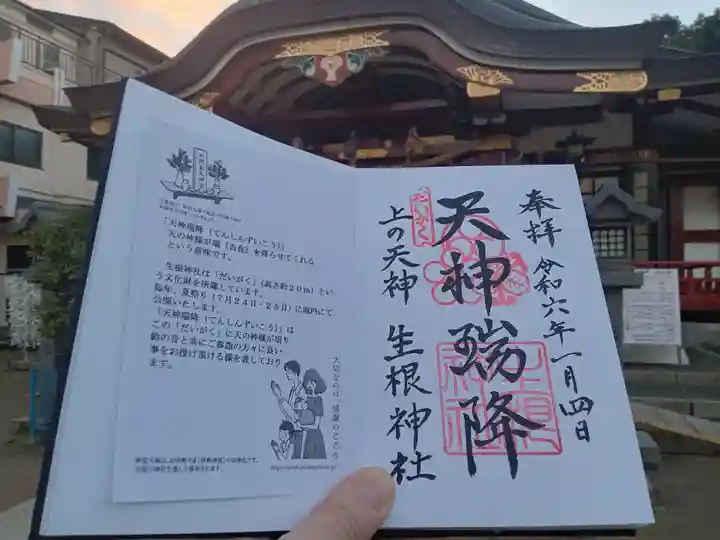 奉拝
令和六年一月四日
天神瑞降
だいがく
上の天神 生根神社
「天神瑞降（てんしんずいこう）」
天の神様が瑞（吉兆）を降らせてくれる
という意味です。
生根神社は「だいがく」（高さ約20m）とい
う文化財を所蔵しています。
毎年、夏祭り（7月24日・25日）に境内にて
公開いたします。
「天神瑞降（てんしんずいこう）」は
この「だいがく」に天の神様が降り
鈴の音と共にご参詣の方々に良い
事をお授け頂ける様を表しており
ます。
大切なのは、感謝のこころ